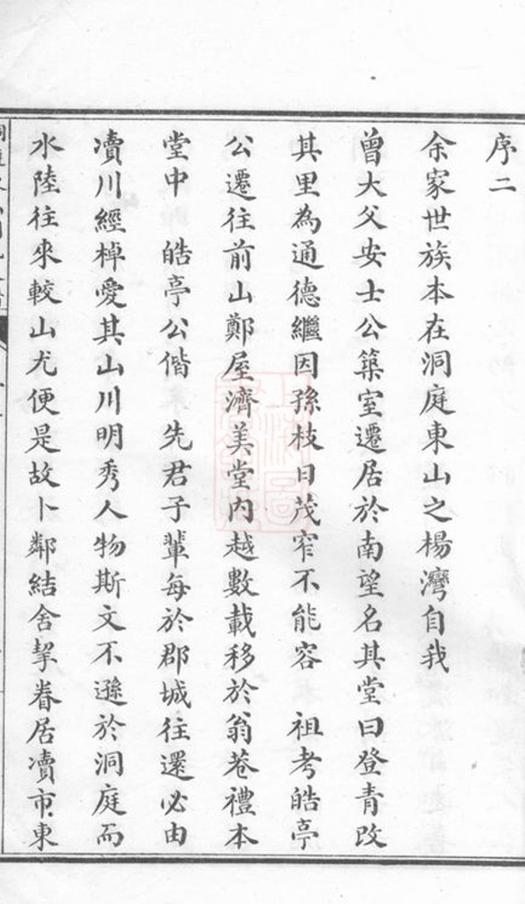 序二
余家世族本在洞庭東山之楊灣自我
曾大父安士公築室遷居於南望名其堂曰登青改
其里為通德繼因孫枝日茂窄不能容 祖考皓亭
公遷往前山鄭屋濟美堂內越數載移於翁巷禮本
堂中 皓亭公偕 先君子輩每於郡城往還必由
瀆川經棹愛其山川明秀人物斯文不遜於洞庭而
水陸往來較山尤便是故卜鄰結舍挈眷居瀆市東